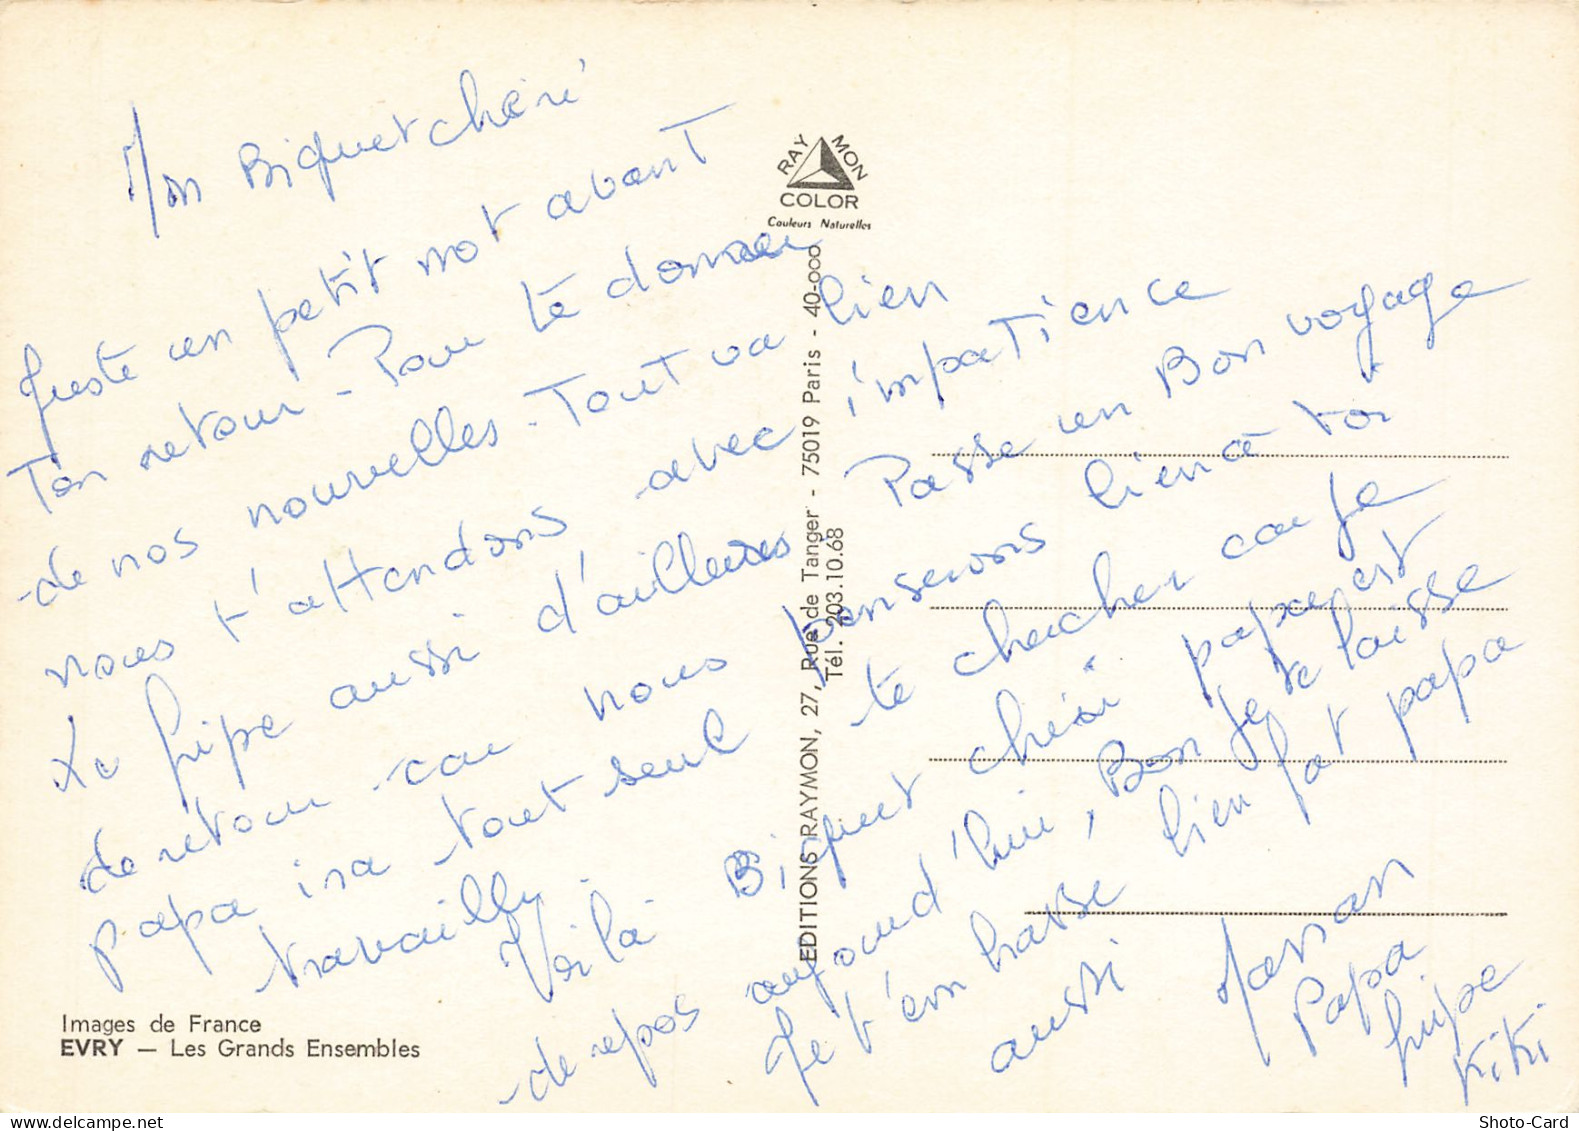 Mon Biquet chéri
Juste un petit mot avant
Ton retour - Pour te donner
de nos nouvelles - Tout va bien
nous t'attendons avec impatience
Le fripe aussi d'ailleurs Passe un Bon voyage
de retour car nous penserons bien à toi
papa ira tout seul te chercher car je
travaille.
Voilà Biquet chéri papa est
de repos aujourd'hui, Bon Je te laisse
Je t'embrasse bien fort papa
aussi
Maman
Papa
fripe
Kiki
RAYMON
COLOR
Couleurs Naturelles
EDITIONS RAYMON, 27, Rue de Tanger - 75019 Paris - 40-000
Tél. 203.10.68
Images de France
EVRY — Les Grands Ensembles
delcampe.net
Shoto-Card